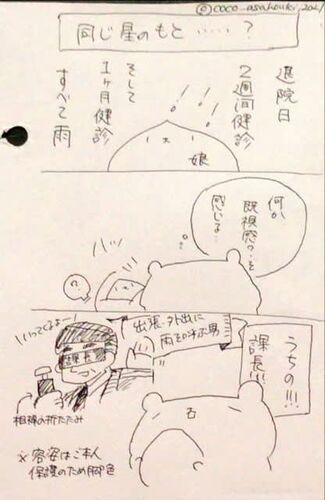 ©coco_asahouki_2021
同じ星のもと……?
退院日
2週間健診
そして
1ヶ月健診
すべて雨
娘
何か
既視感を…
感じる…
ハッ
うちの!!!
課長!!!
出張・外出に
雨を呼ぶ男
いってくるよー!
課長
相棒の折りたたみ
※容姿はご本人
保護のため脚色